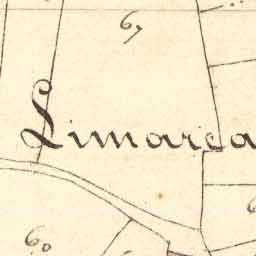 67
Limarea
60